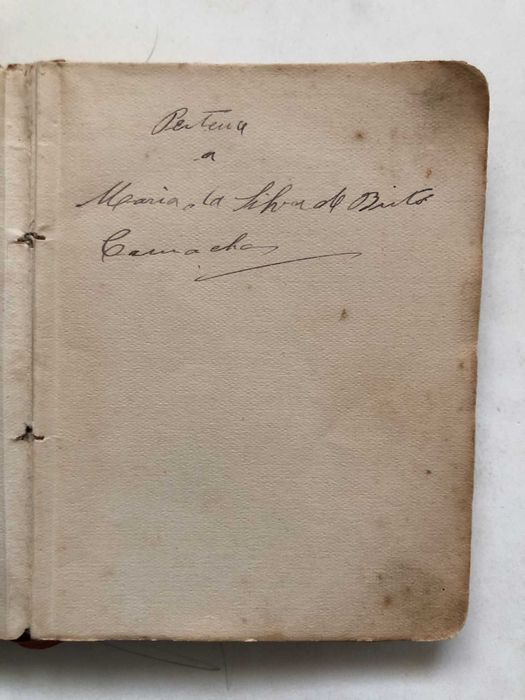 Pertence
a
Maria da Silva de Brito
Camacho